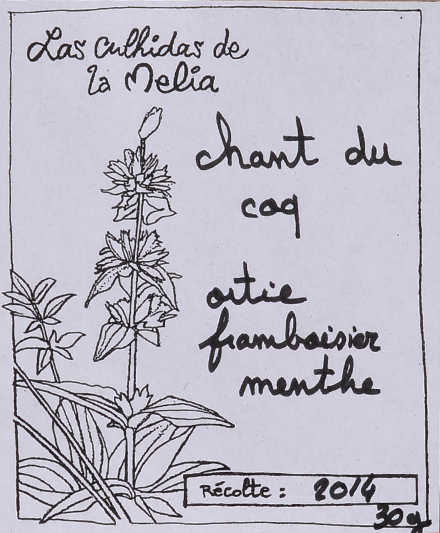 Las culhidas de
la Melia
chant du
coq
ortie
framboisier
menthe
Récolte : 2014
30g